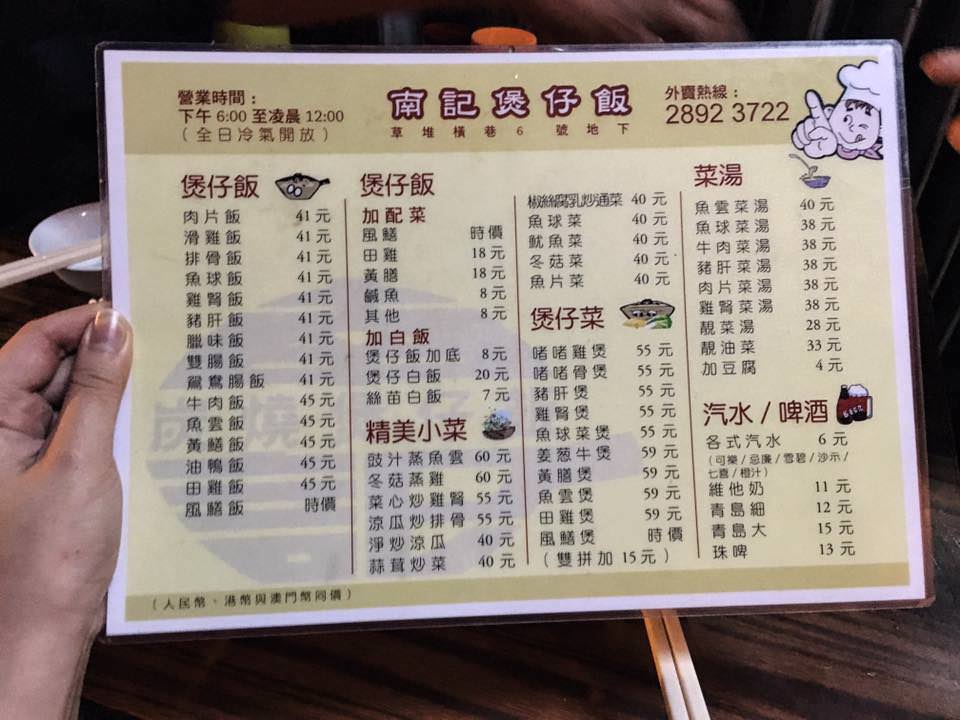 營業時間：
下午 6:00 至凌晨 12:00
（全日冷氣開放）
南記煲仔飯
草堆橫巷6 號地下
外賣熱線：
2892 3722
煲仔飯
肉片飯 41 元
滑雞飯 41 元
排骨飯 41 元
魚球飯 41 元
雞腎飯 41 元
豬肝飯 41 元
臘味飯 41 元
雙腸飯 41 元
鴛鴦腸飯 41 元
牛肉飯 45 元
魚雲飯 45 元
黃鱔飯 45 元
油鴨飯 45 元
田雞飯 45 元
風鱔飯 時價
煲仔飯
加配菜
風鱔 時價
田雞 18 元
黃膳 18 元
鹹魚 8 元
其他 8 元
加白飯
煲仔飯加底 8元
煲仔白飯 20 元
絲苗白飯 7 元
精美小菜
豉汁蒸魚雲 60 元
冬菇蒸雞 60 元
菜心炒雞腎 55 元
涼瓜炒排骨 55 元
淨炒涼瓜 40 元
蒜茸炒菜 40 元
椒絲腐乳炒通菜 40 元
魚球菜 40 元
魷魚菜 40 元
冬菇菜 40 元
魚片菜 40 元
煲仔菜
啫啫雞煲 55 元
啫啫骨煲 55 元
豬肝煲 55 元
雞腎煲 55 元
魚球菜煲 55 元
姜葱牛煲 59 元
黃膳煲 59 元
魚雲煲 59 元
田雞煲 59 元
風鱔煲 時價
（雙拼加 15元）
菜湯
魚雲菜湯 40 元
魚球菜湯 38 元
牛肉菜湯 38 元
豬肝菜湯 38 元
肉片菜湯 38 元
雞腎菜湯 38 元
靚菜湯 28 元
靚油菜 33 元
加豆腐 4 元
汽水 / 啤酒
各式汽水 6 元
(可樂 / 忌廉 / 雪碧 / 沙示 /
七喜 / 橙汁)
維他奶 11 元
青島細 12 元
青島大 15 元
珠啤 13 元
（人民幣、港幣與澳門幣同價）